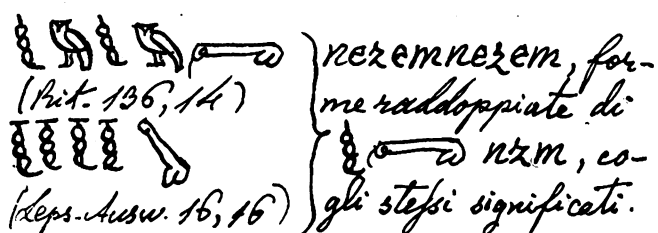 (Rit. 136, 14)
(Leps. Ausw. 16, 16)
nezemnezem, for-
me raddoppiate di
nzm, co-
gli steſsi significati.